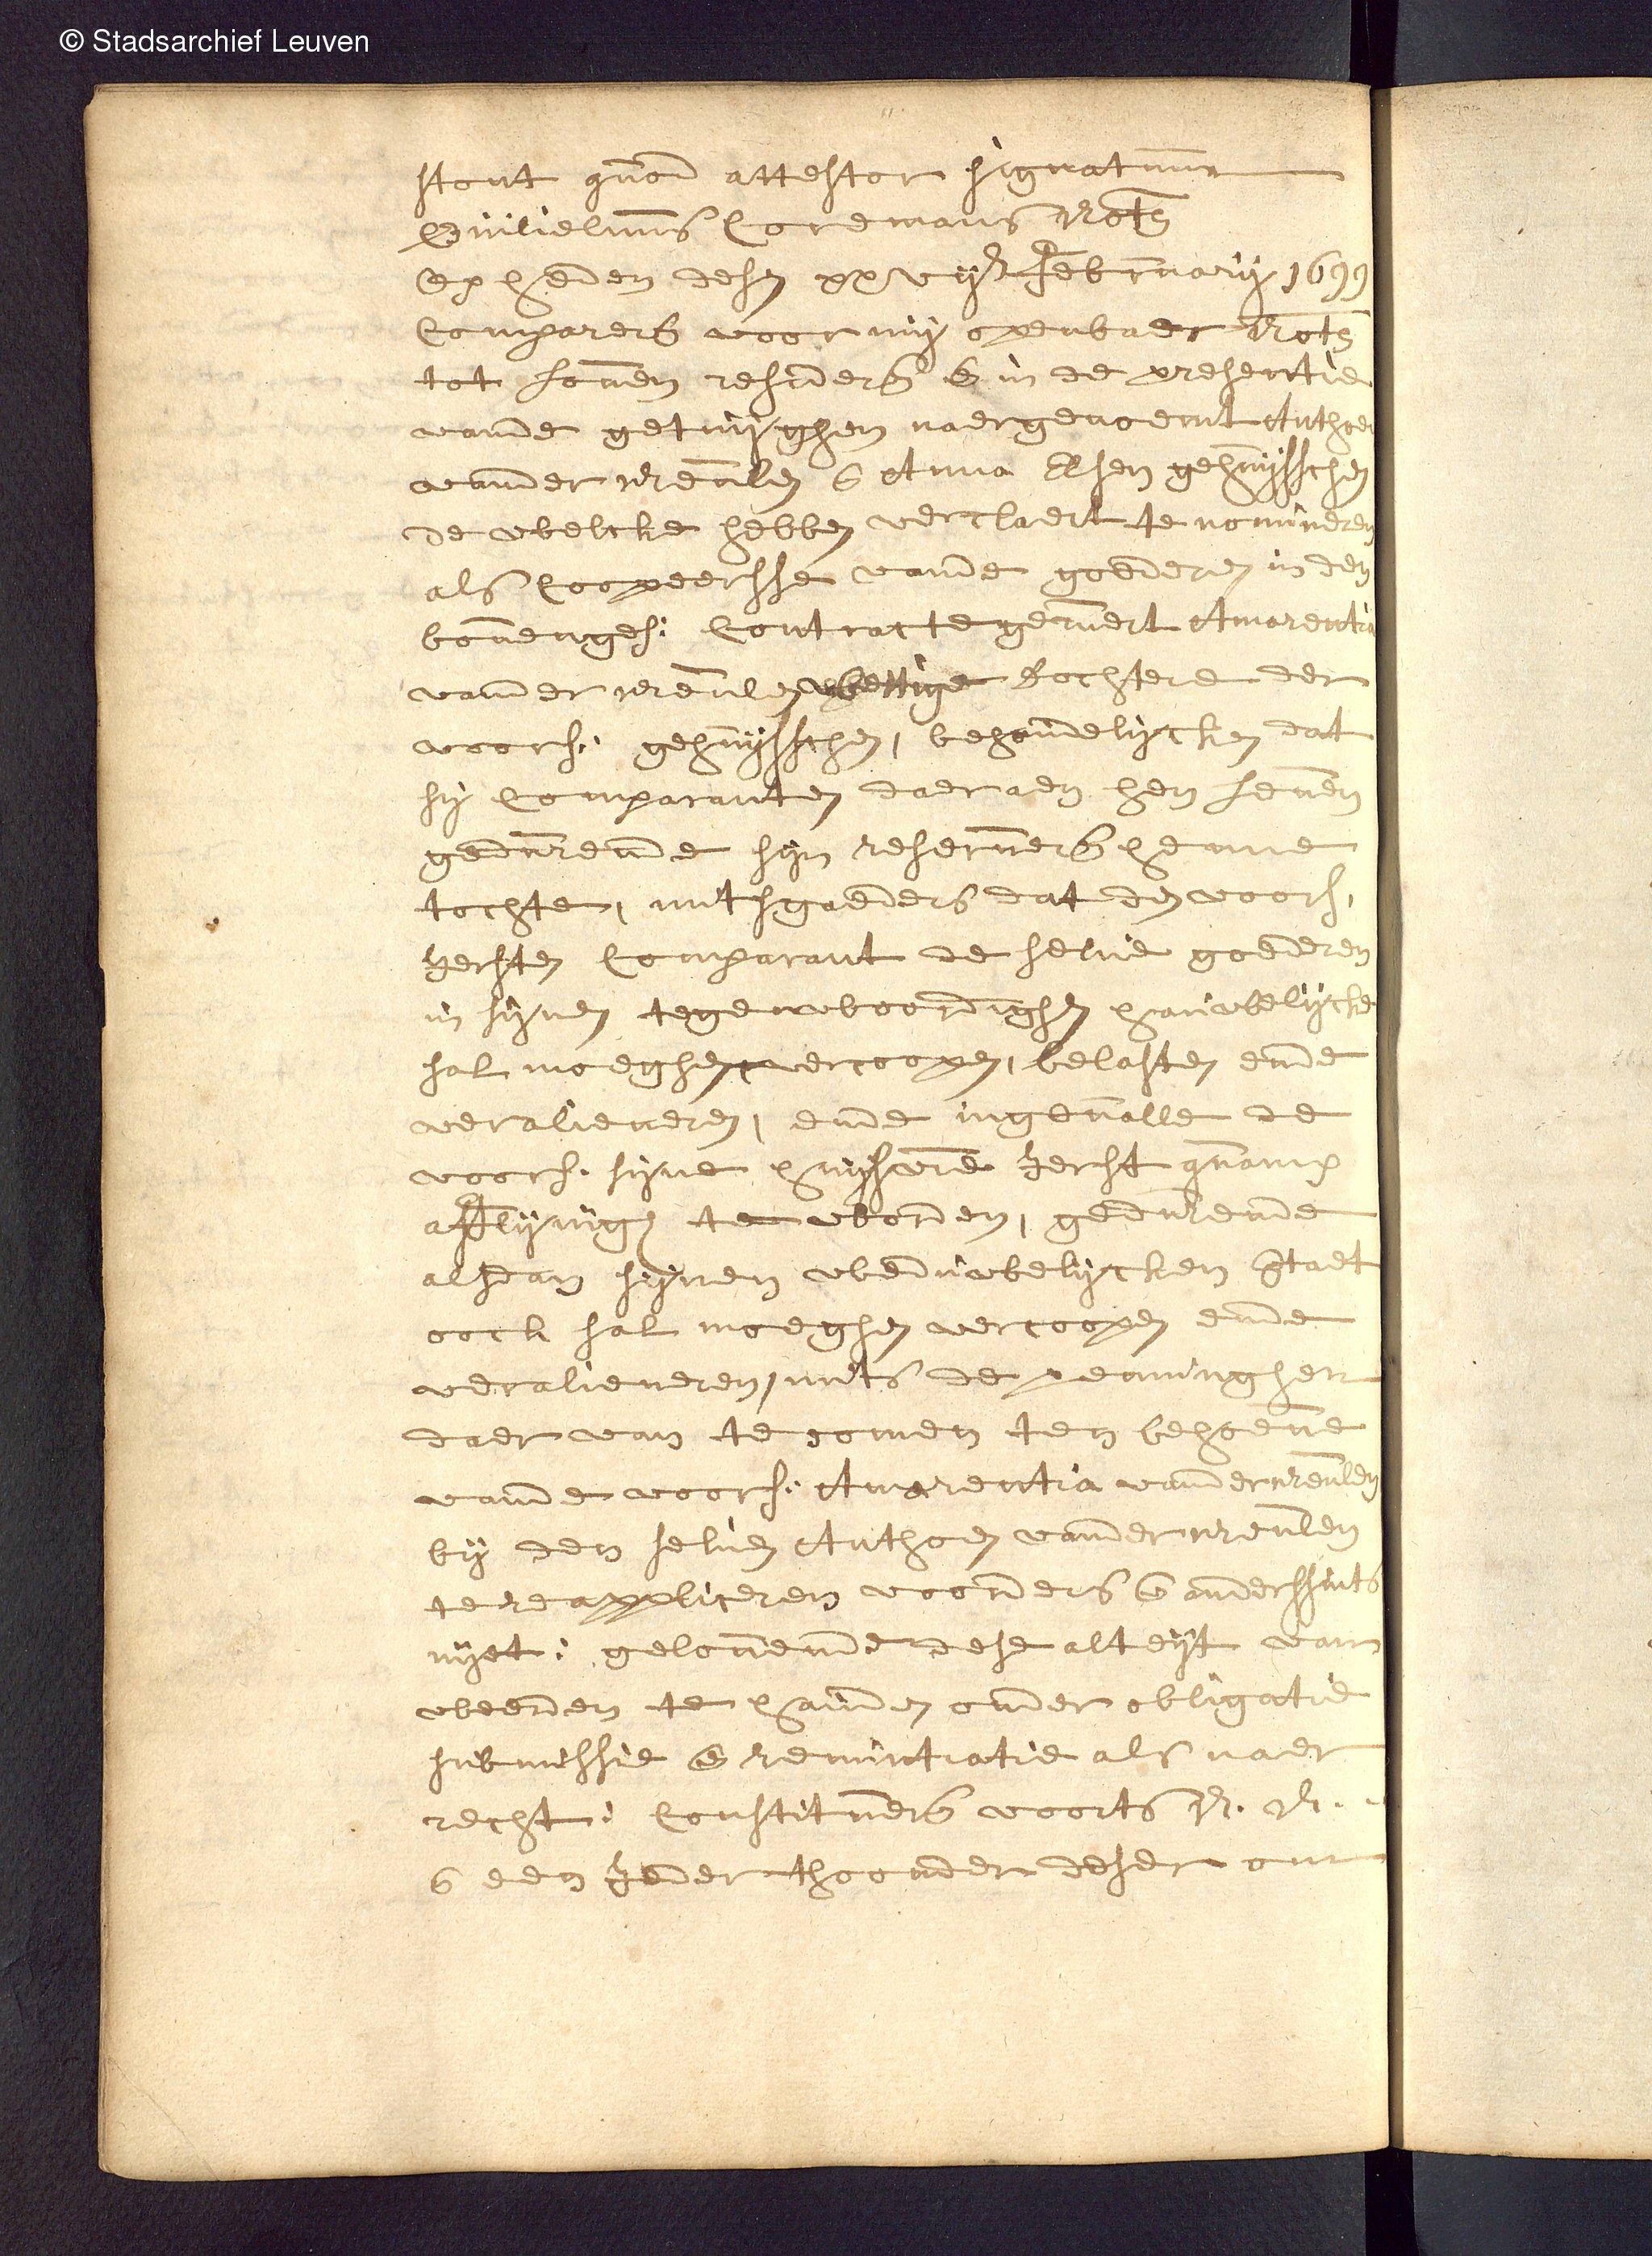 © Stadsarchief Leuven
stont quod attestor signatum
Guilielmus Coremans Nots
Op heden desen xxvijen Februarij 1699
Comparers voor mij openbaer Nots
tot Loven residers en in de presentie
vande getuijghen naergenoemt Anthoen
vander Meulen en Anna Elsen gehuijsschen
de welcke hebben verclaert te nomineren
als Coopeersse vande goederen in den
bovenges: Contracte geruert Amarentia
vander Meulen wettige dochtere der
voors: gehuijsschen, behoudelijcken dat
sij Comparanten daer aen hen leven
gedurende sijn reservers heure
tochte, mitsgaeders dat den voors.
Jersten Comparant de selve goederen
in sijnen tegenwoordighen houwelijcke
sal moeghen vercoopen, belasten ende
veralieneren, ende ingevalle de
voors. sijne huijsvre Jerst quamp
afflijvigh te worden, gedurende
alsdan sijnen weduwelijcken staet
oock sal moeghen vercoopen ende
veralieneren, mits de penninghen
daer van te comen ten behoeve
vande voors. Amarentia vander Meulen
bij den selven Anthoen vander Meulen
te reappliceren voorders en anderssints
nijet: gelovende dese altijt van
weerden te houden onder obligatie
submissie en renuntiatie als naer
recht: Constituers voorts N. N.
en een Jeder thoonder deser om